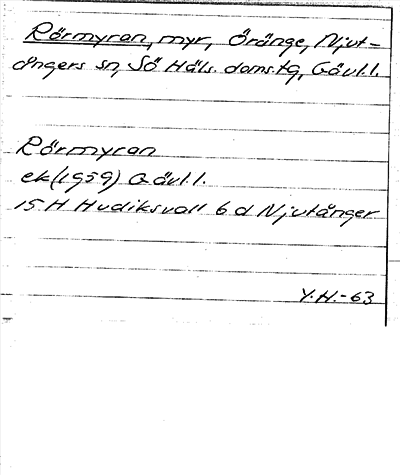 Rörmyran, myr, Öränge, Njut-
ångers sn, Sö Häls. doms.tg, Gävl.l.
Rörmyran
ek(1959) Gävl.l.
15 H Hudiksvall 6 d Njutånger
Y.H.-63